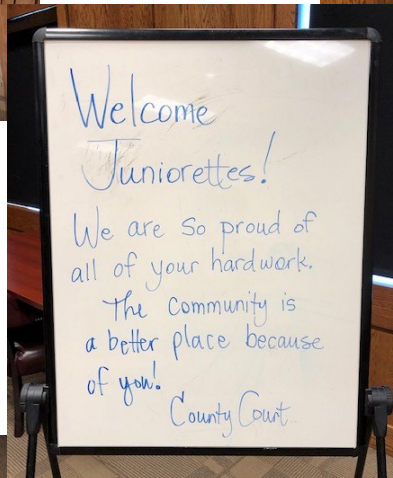 Welcome
Juniorettes!
We are so proud of
all of your hardwork.
The Community is
a better place because
of you!
County Court